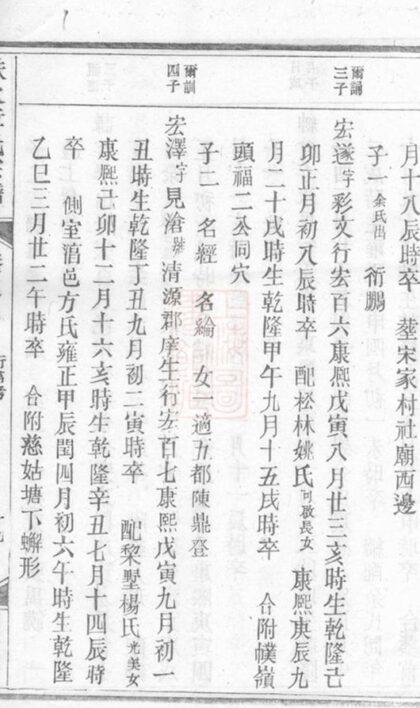 月十八辰時卒 塟宋家村社廟西邊
子一余氏出 衍鵬
爾誦三子
宏遂字彩文行宏百六康熈戊寅八月廿三亥時生乾隆己
卯正月初八辰時卒 配松林姚氏可啟長女 康熈庚辰九
月二十戌時生乾隆甲午九月十五戌時卒 合附幞嶺
頭福二公同穴
子二 名經 名綸 女一適五都陳鼎登
爾訓四子
宏澤字見滄號清源郡庠生行宏百七康熈戊寅九月初一
丑時生乾隆丁丑九月初二寅時卒 配棃墅楊氏光美女
康熈己卯十二月十六亥時生乾隆辛丑七月十四辰時
卒 側室涫邑方氏雍正甲辰閏四月初六午時生乾隆
乙巳三月廿二午時卒 合附慈姑塘下蠏形